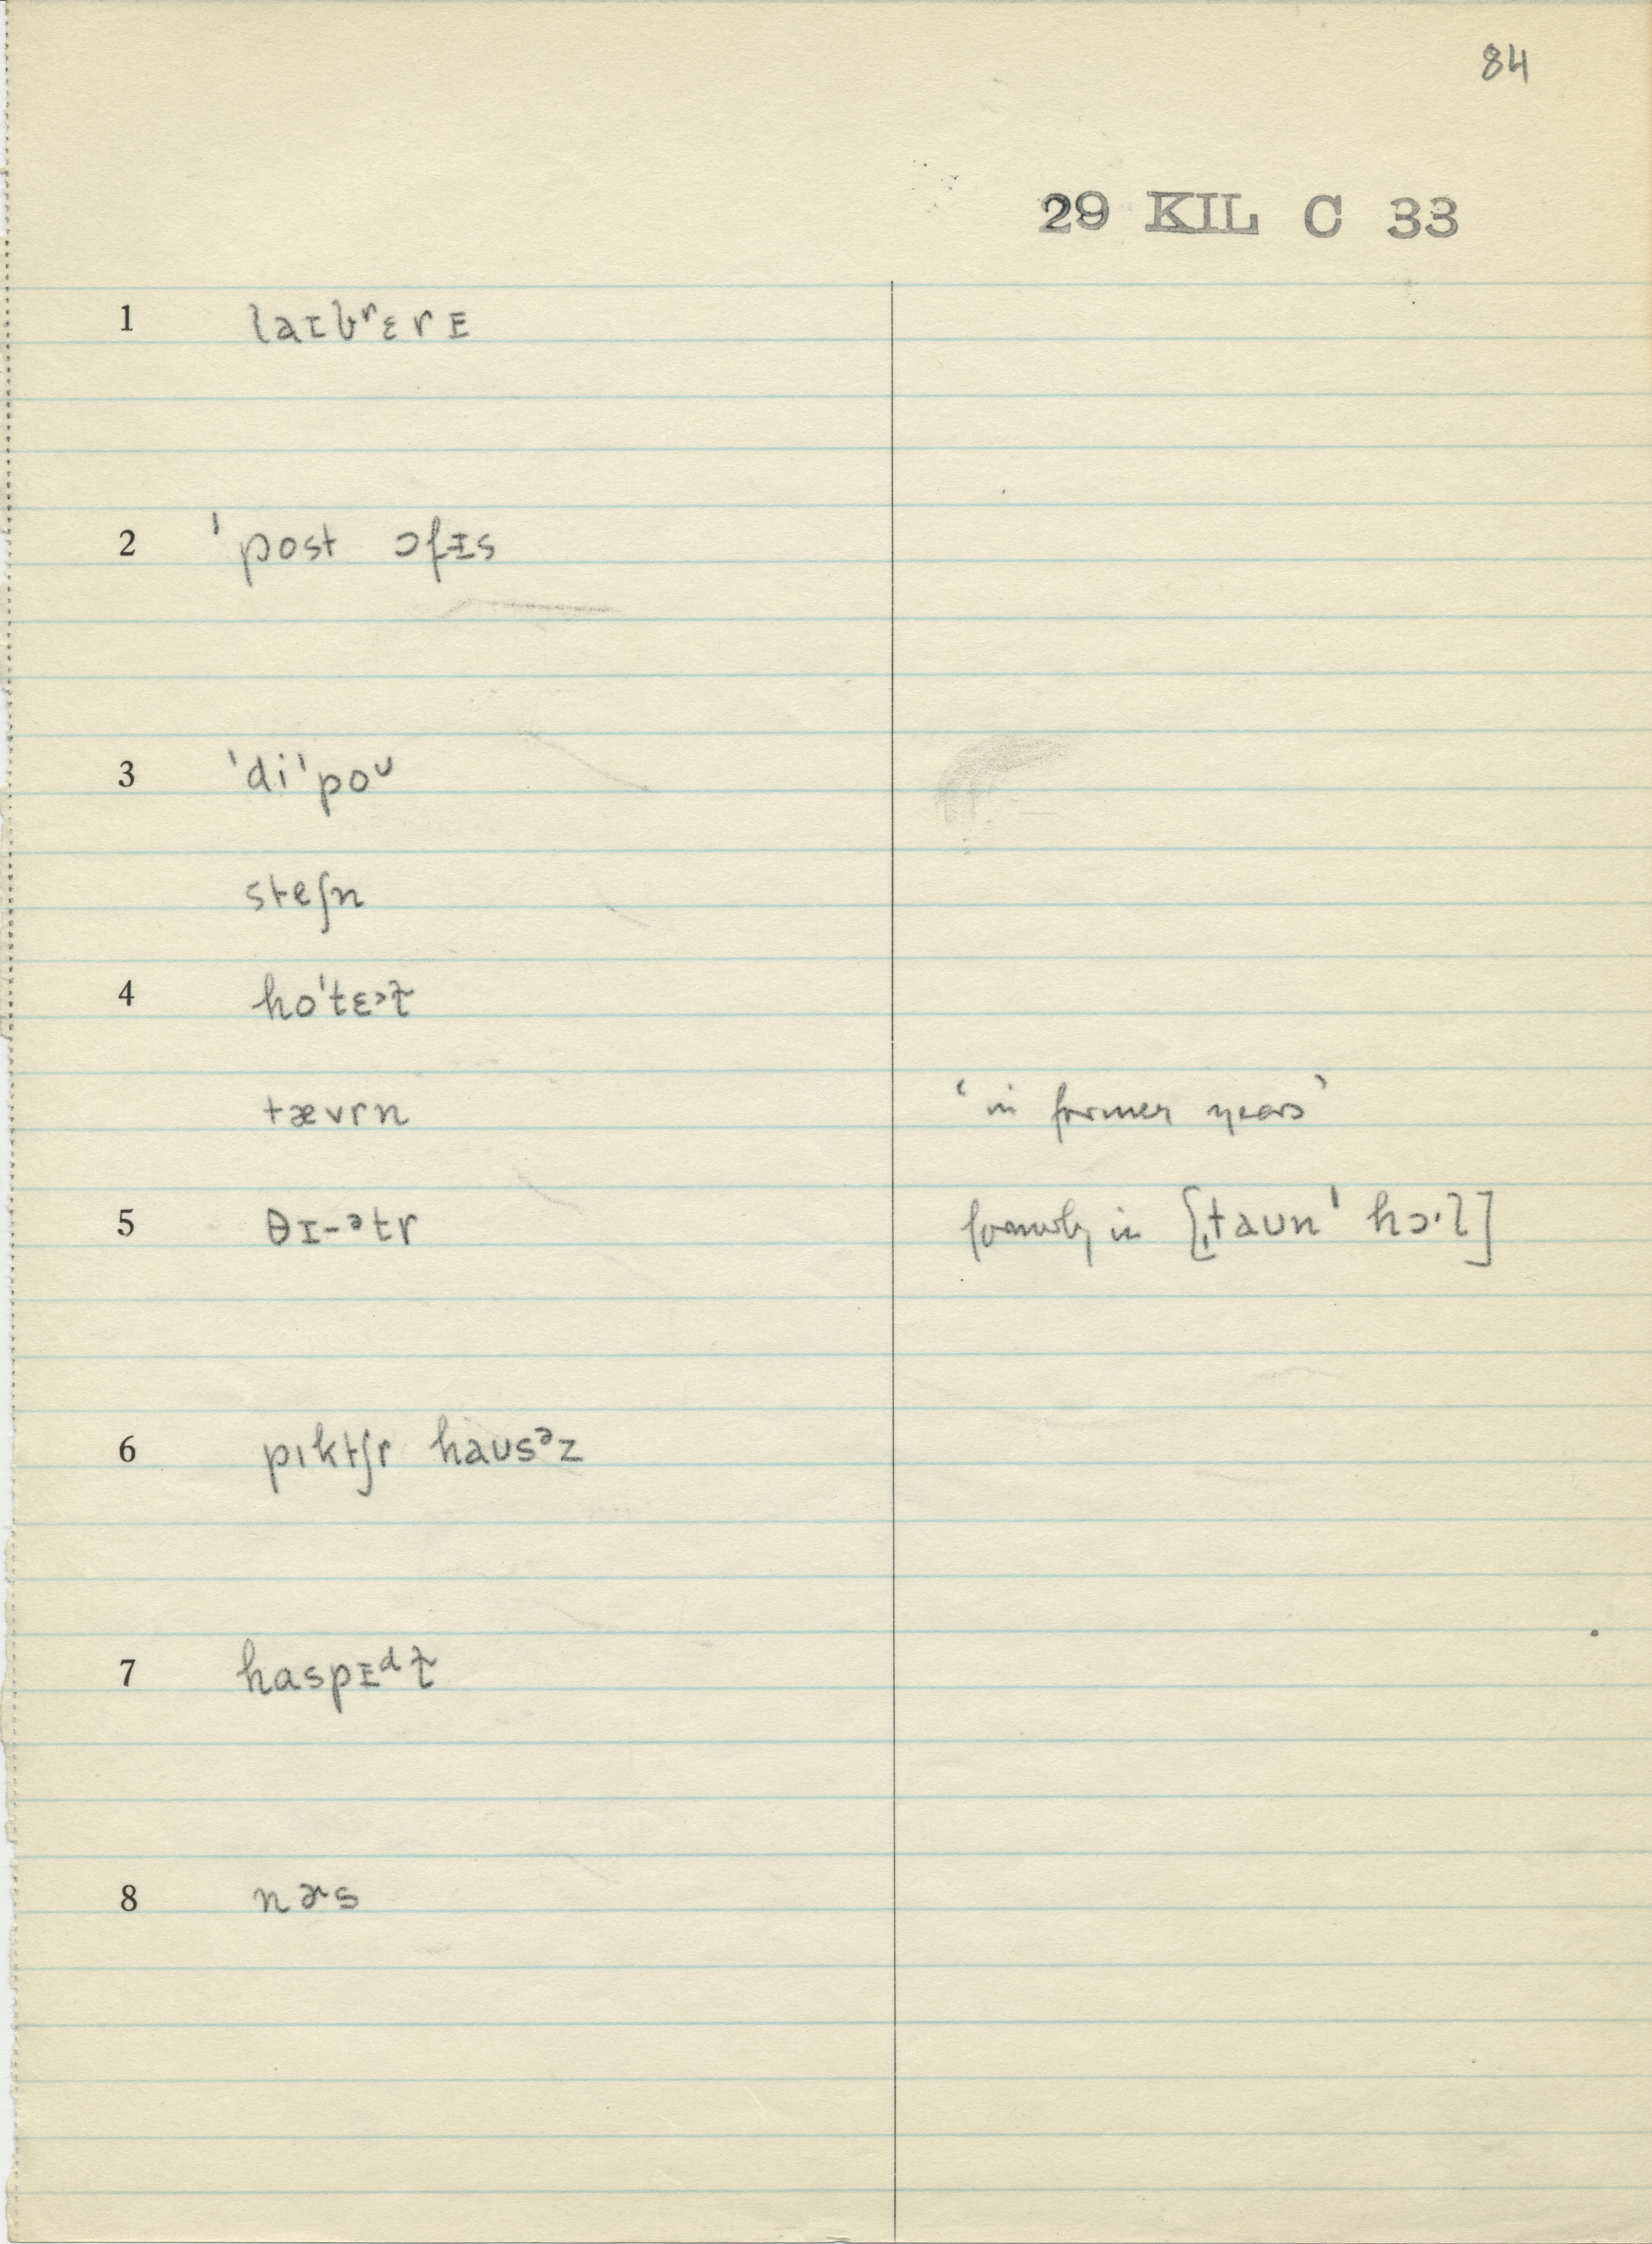 84
29 KIL C 33
1 laɪbʳɛrɪ
2 ˈpost ɔfɪs
3 ˈdiˈpoᶷ
steʃn
4 hoˈtɛ˃ɫ
tævrn ‘in former years’
5 θɪ-ᵊtr formerly in [ˌtaʊnˈ hɔ·l]
6 pıktʃr haʊsᵊz
7 haspɪᵈɫ
8 nɚs